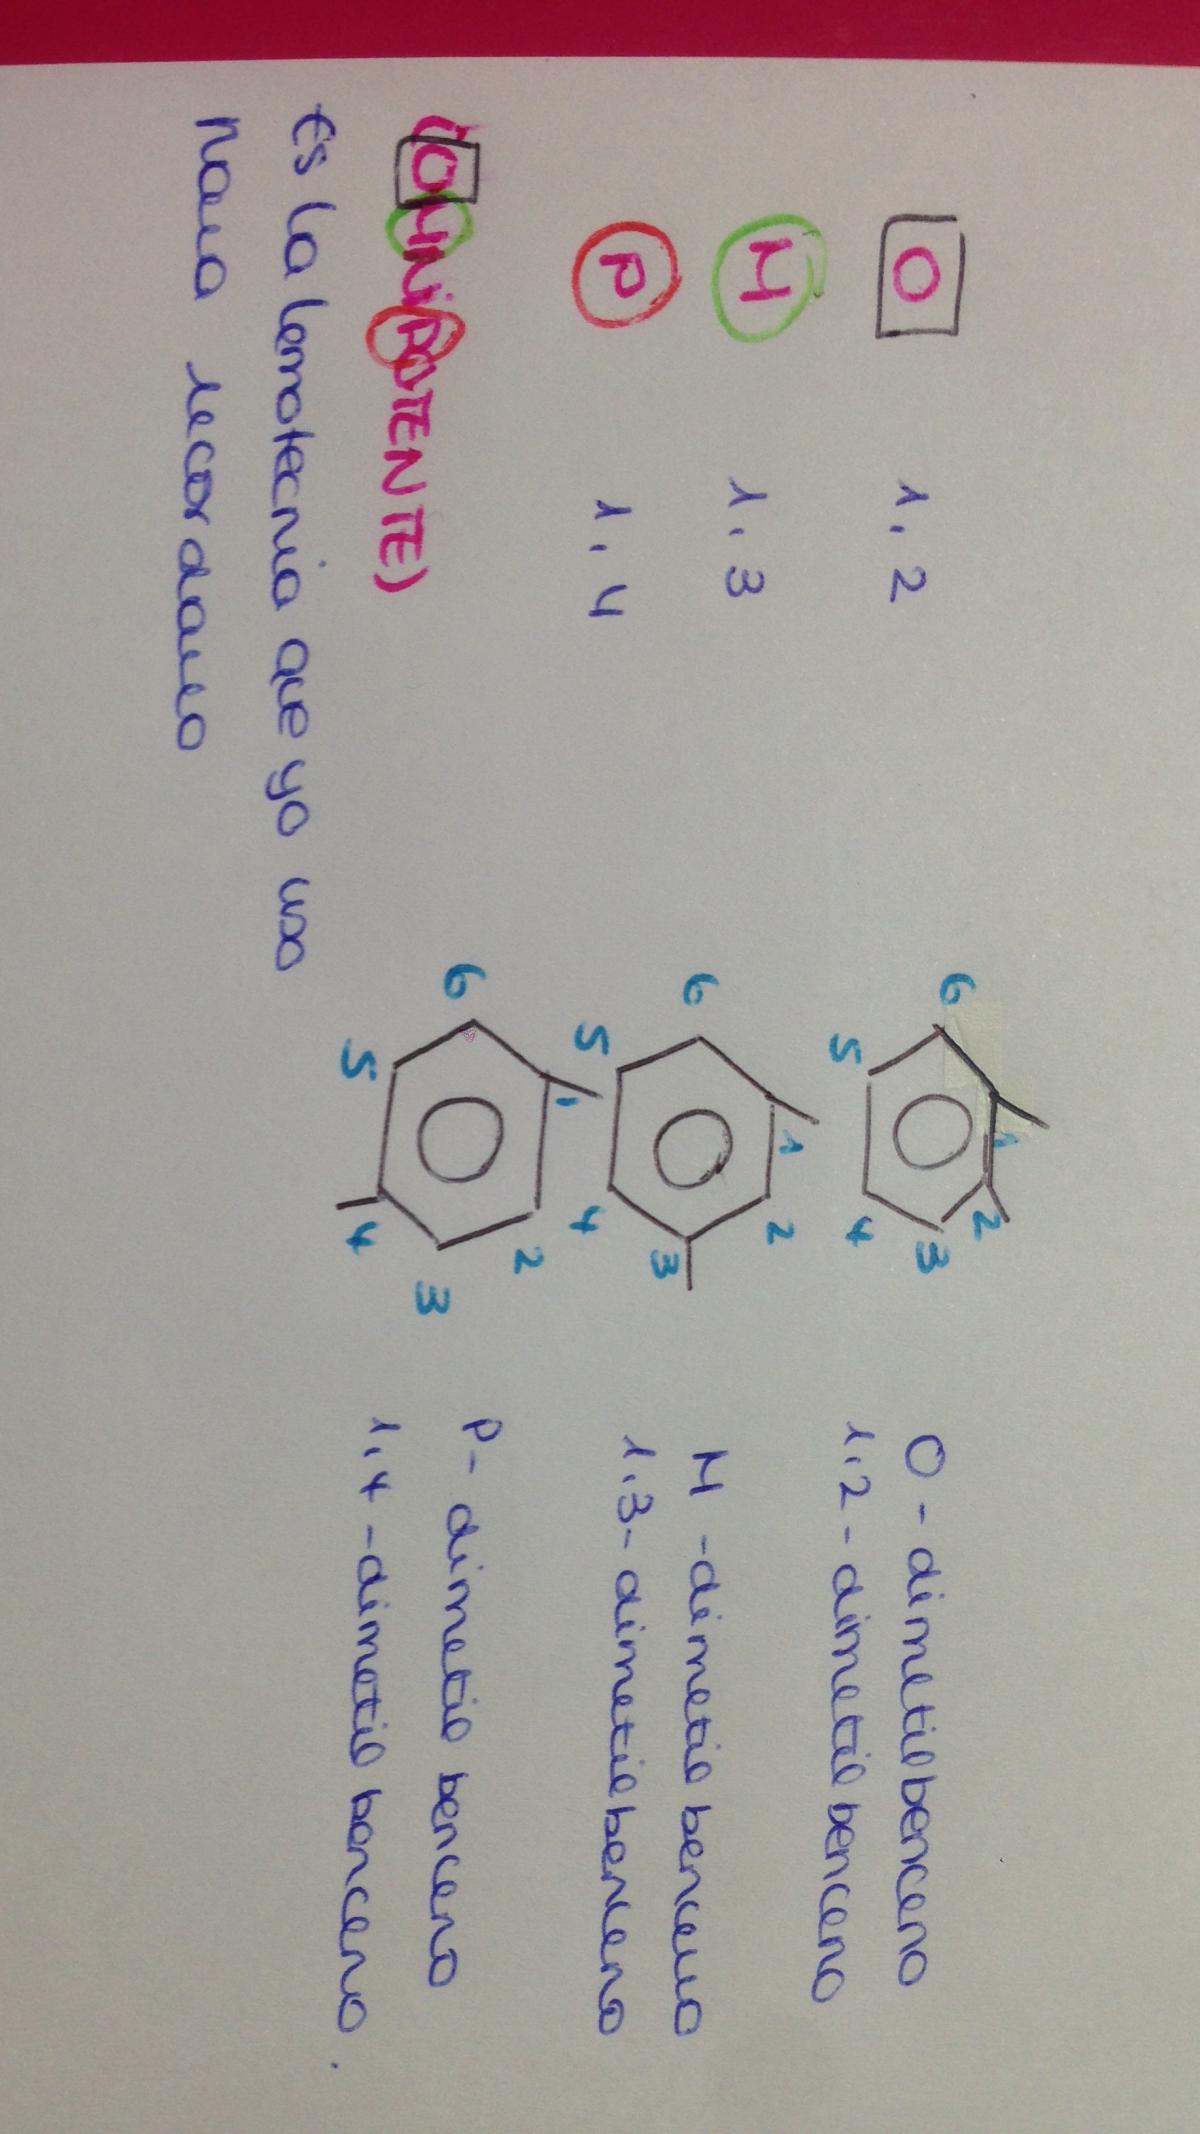 O 1,2
6 1 2 5 4 3
O - dimetilbenceno
1,2 - dimetil benceno
M 1,3
6 1 2 5 4 3
M - dimetil benceno
1,3 - dimetilbenceno
P 1,4
6 1 2 5 4 3
P - dimetil benceno
1,4 - dimetil benceno.
(OMNiPOTENTE)
Es la lemotecnia que yo uso
para recordarlo